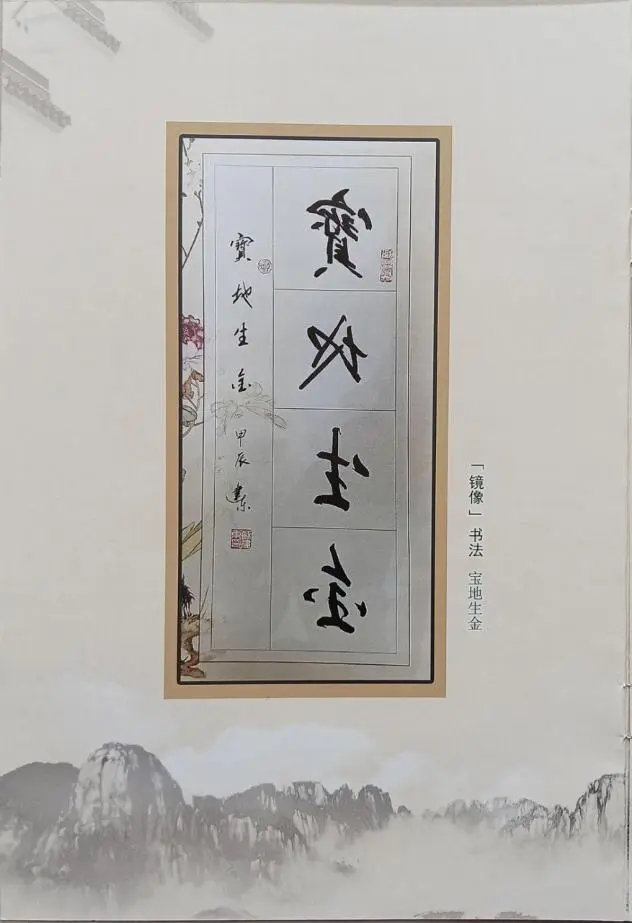 「镜像」书法 宝地生金
寳地生金
寳地生金 甲辰 建东